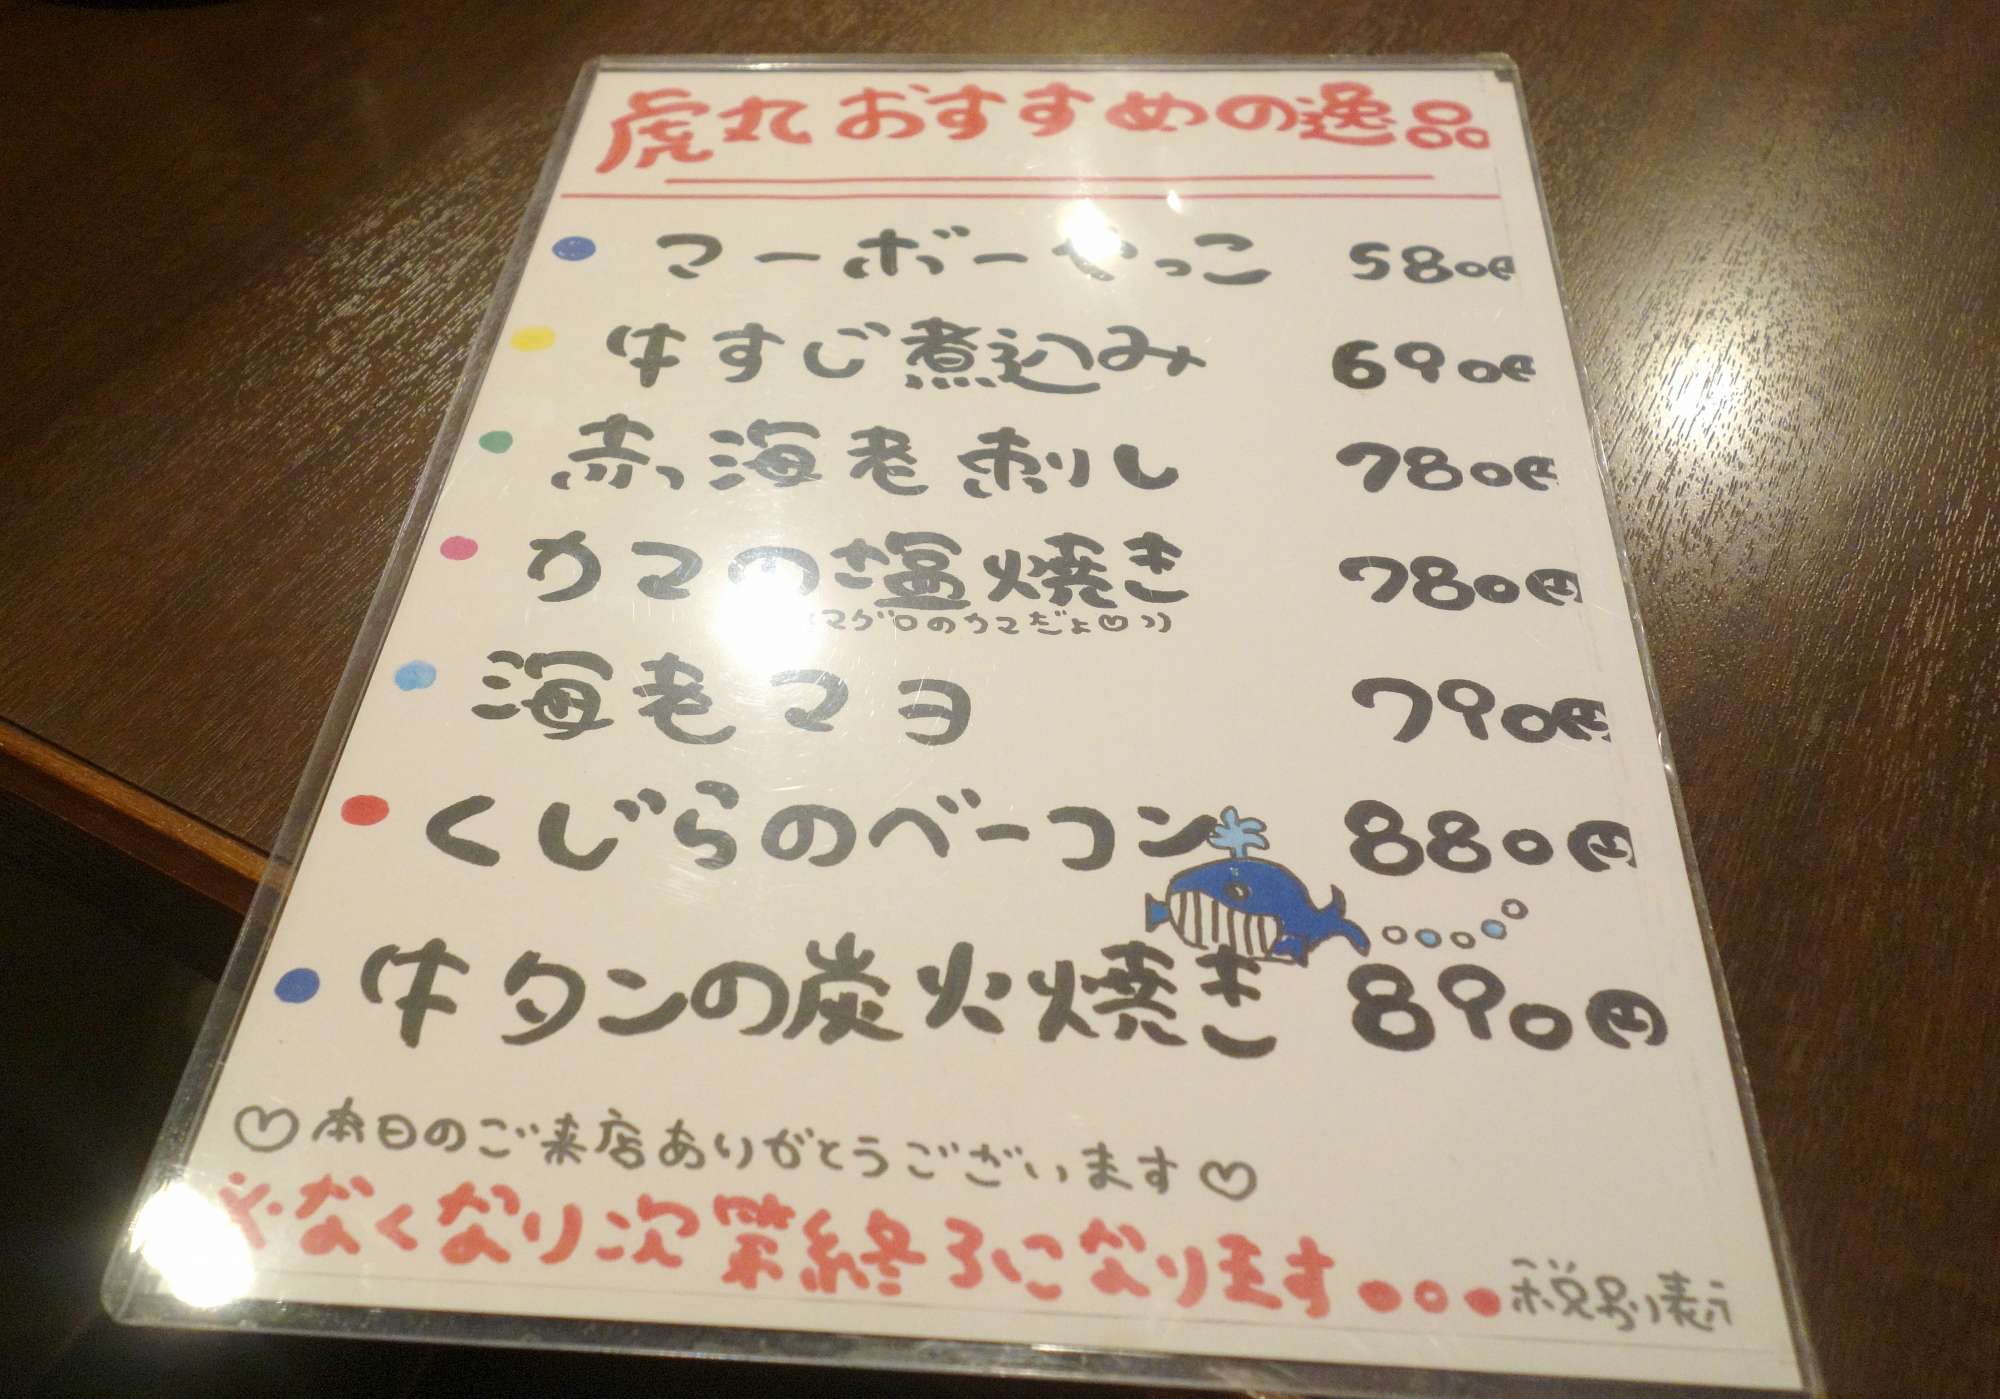 虎丸おすすめの逸品
マーボーやっこ 580円
牛すじ煮込み 690円
赤海老刺し 780円
カマの塩焼き 780円
(マグロのカマだよ♡))
海老マヨ 790円
くじらのベーコン 880円
牛タンの炭火焼き 890円
♡本日のご来店ありがとうございます♡
※なくなり次第終了になります...
税別表示